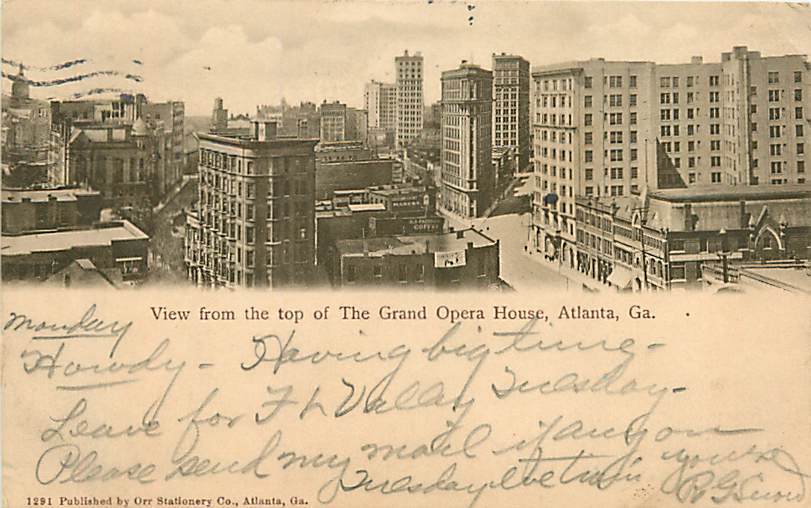 View from the top of The Grand Opera House, Atlanta, Ga.
Monday
Howdy - Having big time -
Leave for Ft Valley Tuesday -
Please send my mail if any on
Tuesday eve train yours
R G
1291 Published by Orr Stationery Co., Atlanta, Ga.